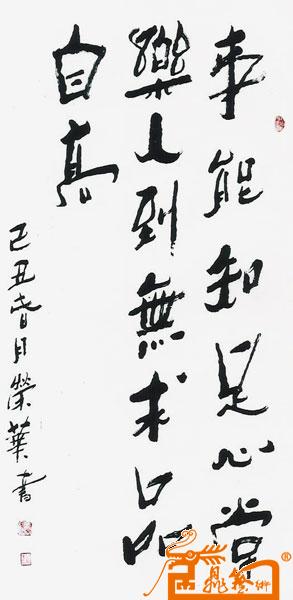 事能知足心常
樂人到無求品
自高
己丑春月榮華書